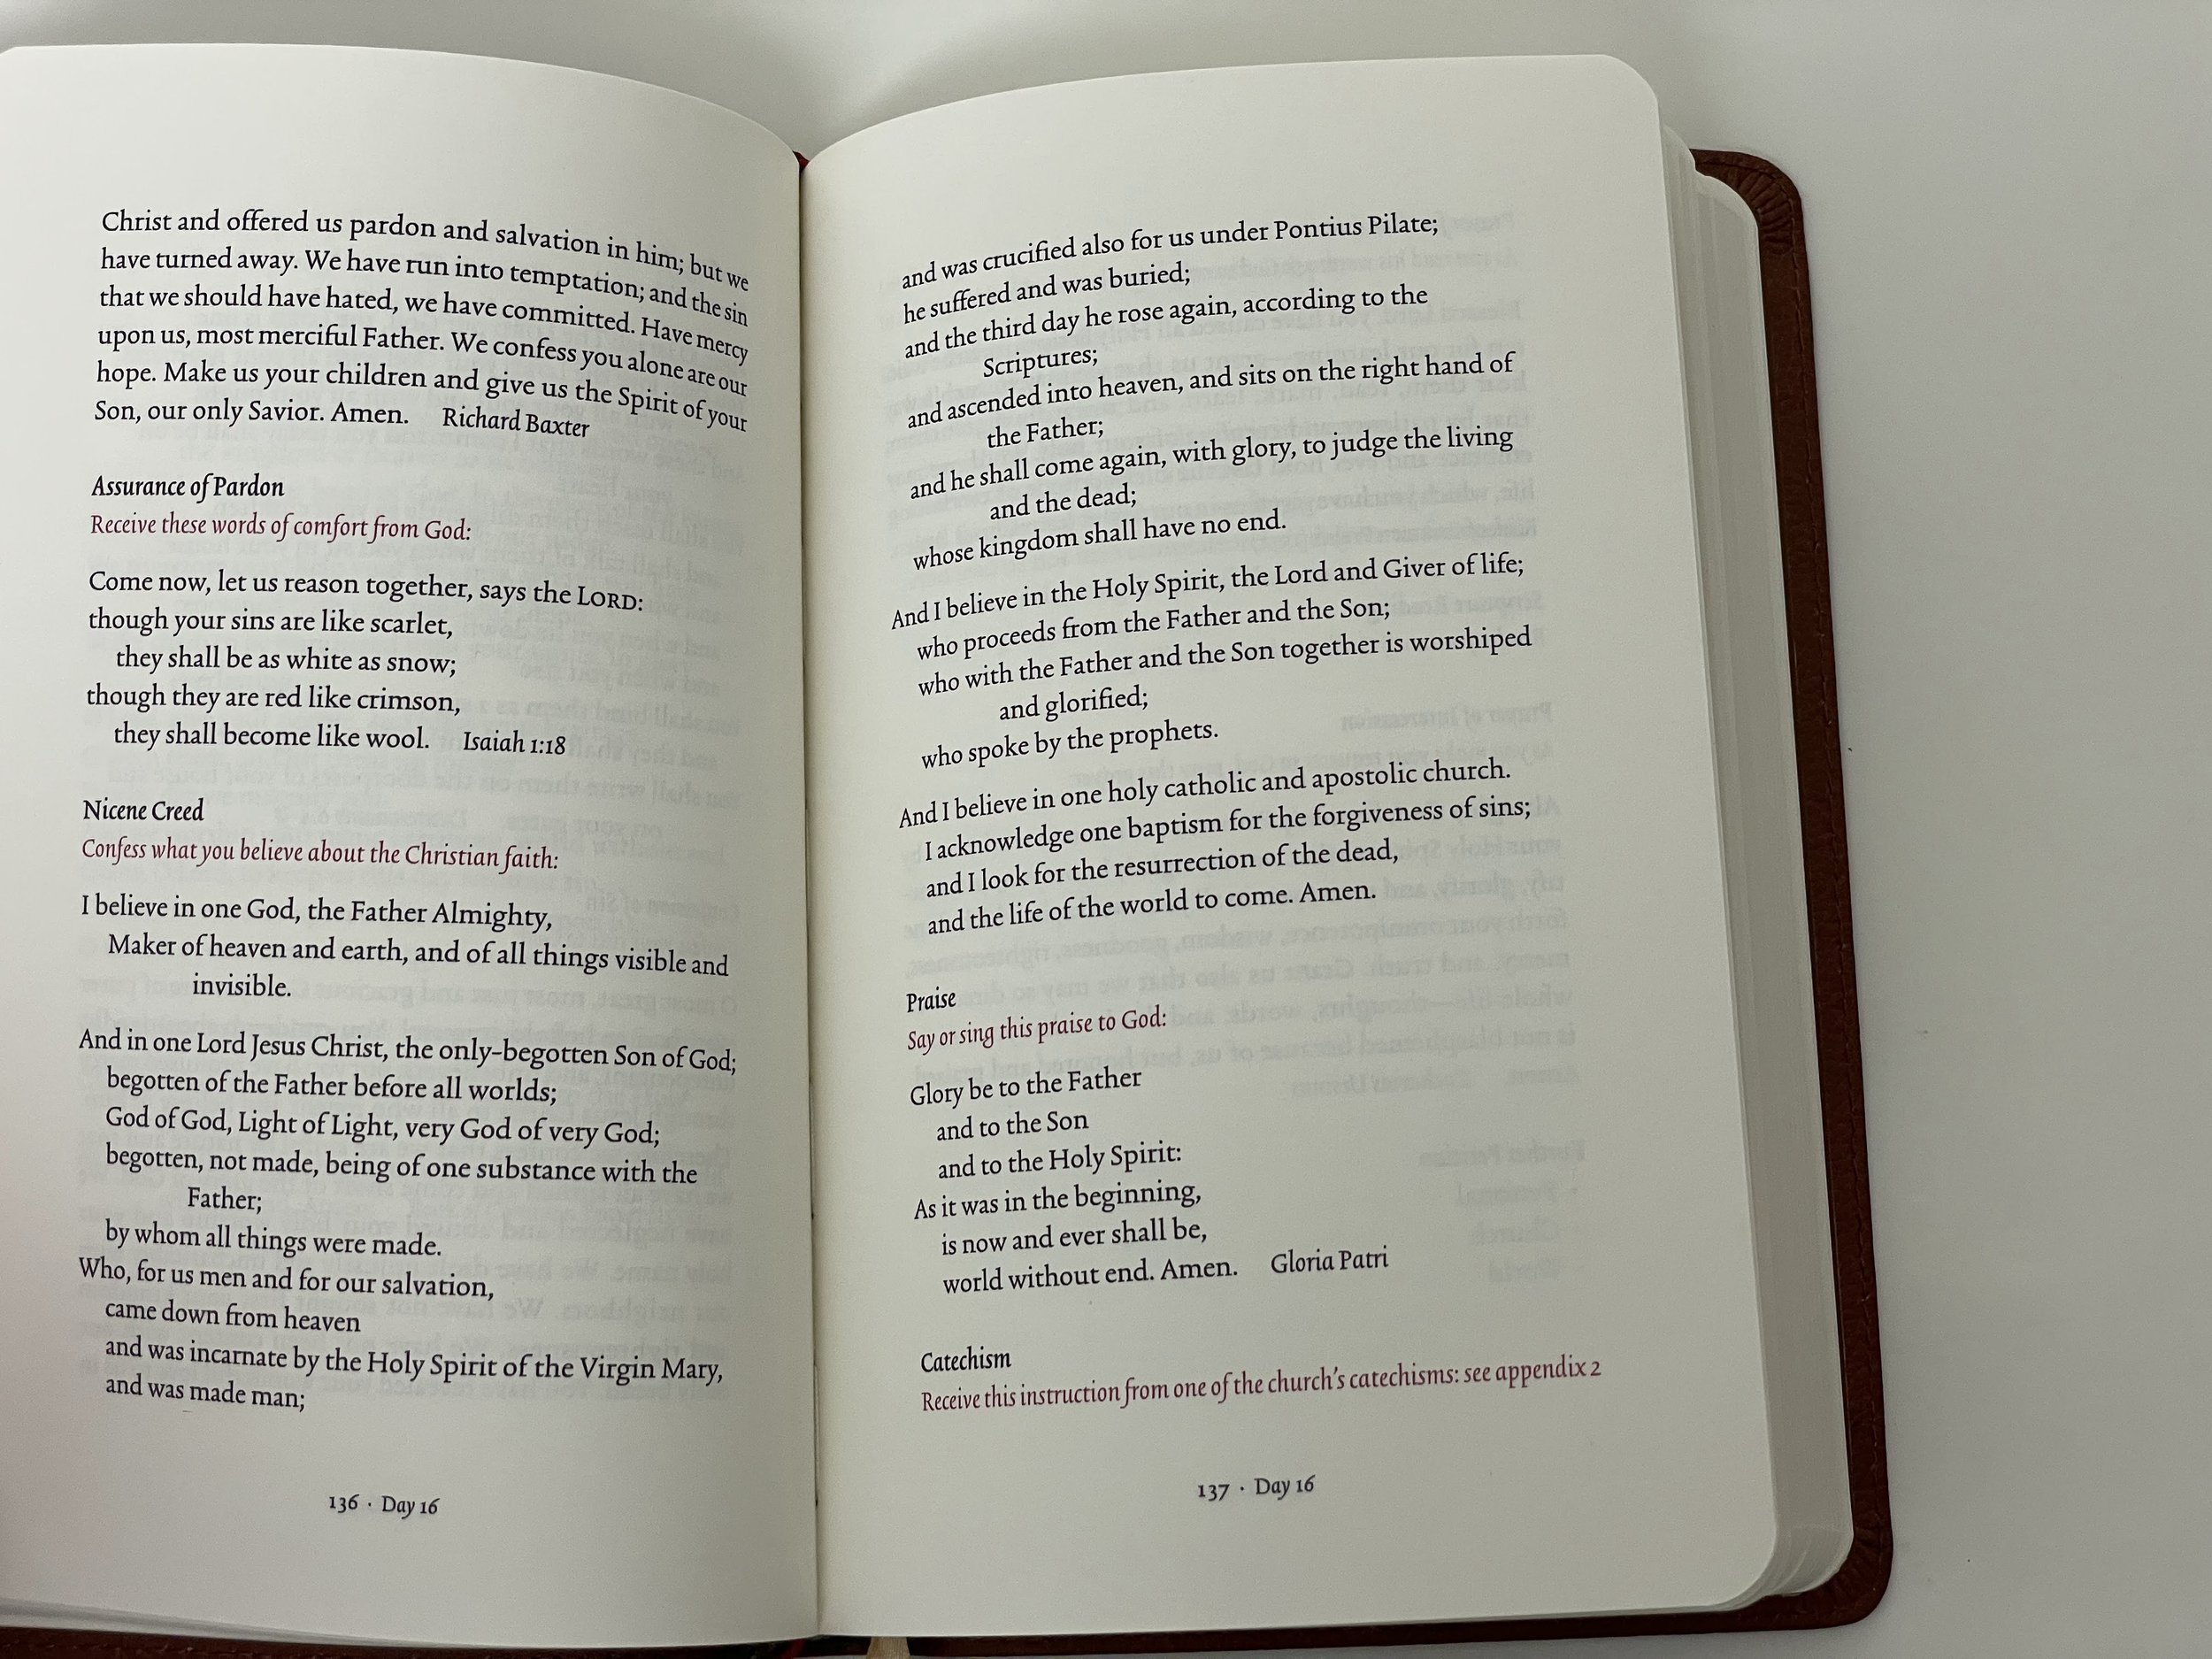 Christ and offered us pardon and salvation in him; but we
have turned away. We have run into temptation; and the sin
that we should have hated, we have committed. Have mercy
upon us, most merciful Father. We confess you alone are our
hope. Make us your children and give us the Spirit of your
Son, our only Savior. Amen. Richard Baxter
Assurance of Pardon
Receive these words of comfort from God:
Come now, let us reason together, says the LORD:
though your sins are like scarlet,
they shall be as white as snow;
though they are red like crimson,
they shall become like wool. Isaiah 1:18
Nicene Creed
Confess what you believe about the Christian faith:
I believe in one God, the Father Almighty,
Maker of heaven and earth, and of all things visible and
invisible.
And in one Lord Jesus Christ, the only-begotten Son of God;
begotten of the Father before all worlds;
God of God, Light of Light, very God of very God;
begotten, not made, being of one substance with the
Father;
by whom all things were made.
Who, for us men and for our salvation,
came down from heaven
and was incarnate by the Holy Spirit of the Virgin Mary,
and was made man;
136 · Day 16
and was crucified also for us under Pontius Pilate;
he suffered and was buried;
and the third day he rose again, according to the
Scriptures;
and ascended into heaven, and sits on the right hand of
the Father;
and he shall come again, with glory, to judge the living
and the dead;
whose kingdom shall have no end.
And I believe in the Holy Spirit, the Lord and Giver of life;
who proceeds from the Father and the Son;
who with the Father and the Son together is worshiped
and glorified;
who spoke by the prophets.
And I believe in one holy catholic and apostolic church.
I acknowledge one baptism for the forgiveness of sins;
and I look for the resurrection of the dead,
and the life of the world to come. Amen.
Praise
Say or sing this praise to God:
Glory be to the Father
and to the Son
and to the Holy Spirit:
As it was in the beginning,
is now and ever shall be,
world without end. Amen. Gloria Patri
Catechism
Receive this instruction from one of the church's catechisms: see appendix 2
137 · Day 16